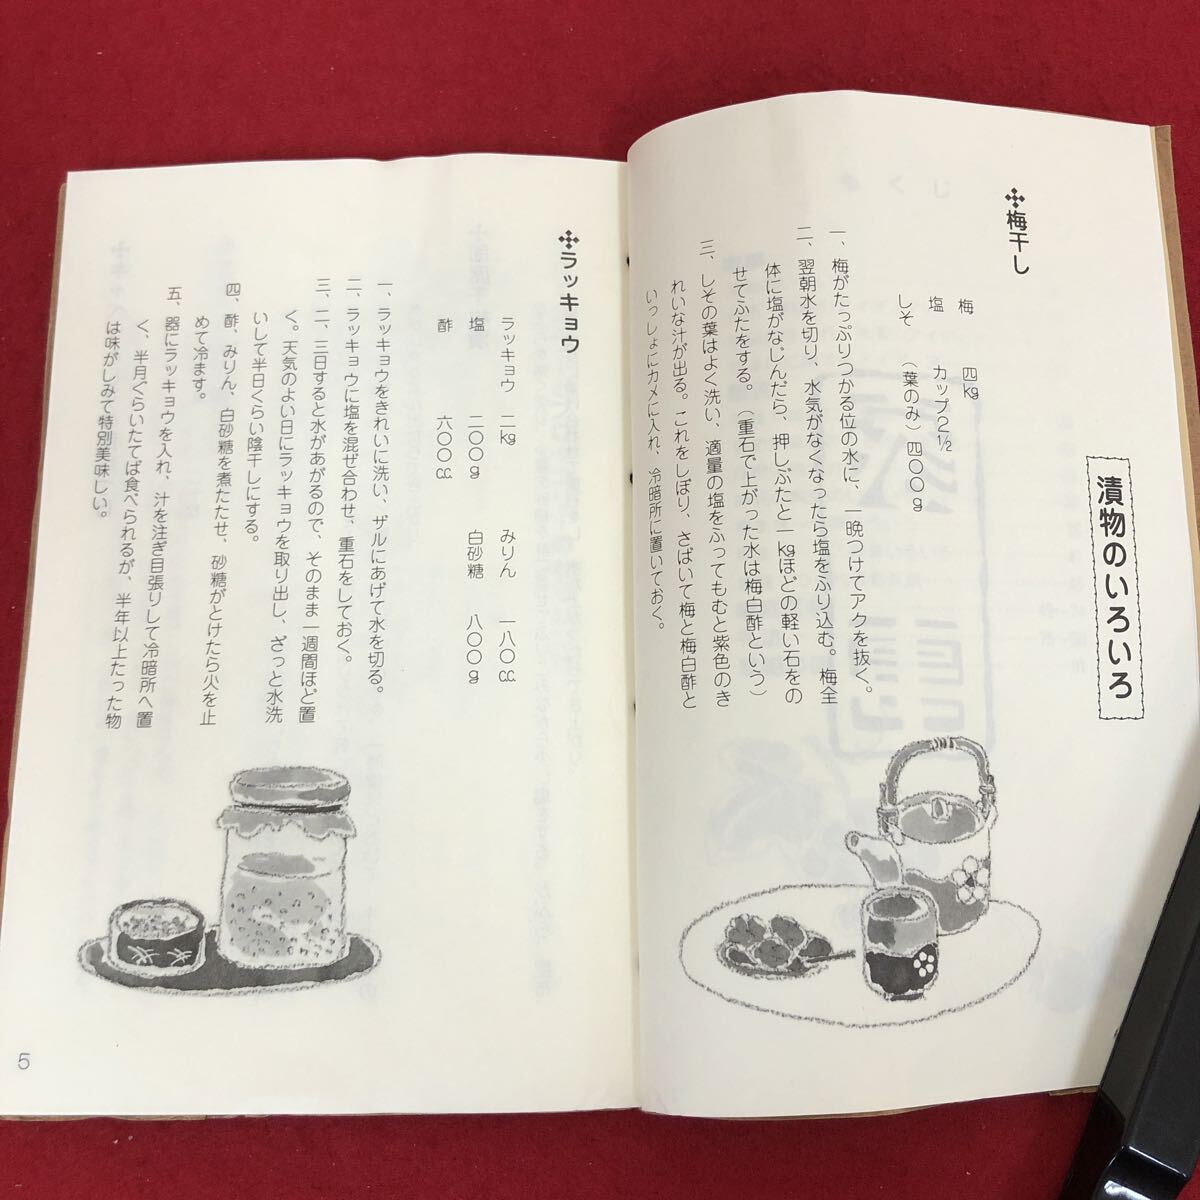 漬物のいろいろ
梅干し
梅　四kg
塩　カップ2½
しそ　（葉のみ）四〇〇g
一、梅がたっぷりつかる位の水に、一晩つけてアクを抜く。
二、翌朝水を切り、水気がなくなったら塩をふり込む。梅全
体に塩がなじんだら、押しぶたと一kgほどの軽い石をの
せてふたをする。（重石で上がった水は梅白酢という）
三、しその葉はよく洗い、適量の塩をふってもむと紫色のき
れいな汁が出る。これをしぼり、さばいて梅と梅白酢と
いっしょにカメに入れ、冷暗所に置いておく。
ラッキョウ
ラッキョウ　二kg　みりん　一八〇cc
塩　二〇〇g　白砂糖　八〇〇g
酢　六〇〇cc
一、ラッキョウをきれいに洗い、ザルにあげて水を切る。
二、ラッキョウに塩を混ぜ合わせ、重石をしておく。
三、二、三日すると水があがるので、そのまま一週間ほど置
く。天気のよい日にラッキョウを取り出し、ざっと水洗
いして半日くらい陰干しにする。
四、酢、みりん、白砂糖を煮たたせ、砂糖がとけたら火を止
めて冷ます。
五、器にラッキョウを入れ、汁を注ぎ目張りして冷暗所へ置
く、半月ぐらいたてば食べられるが、半年以上たった物
は味がしみて特別美味しい。
5